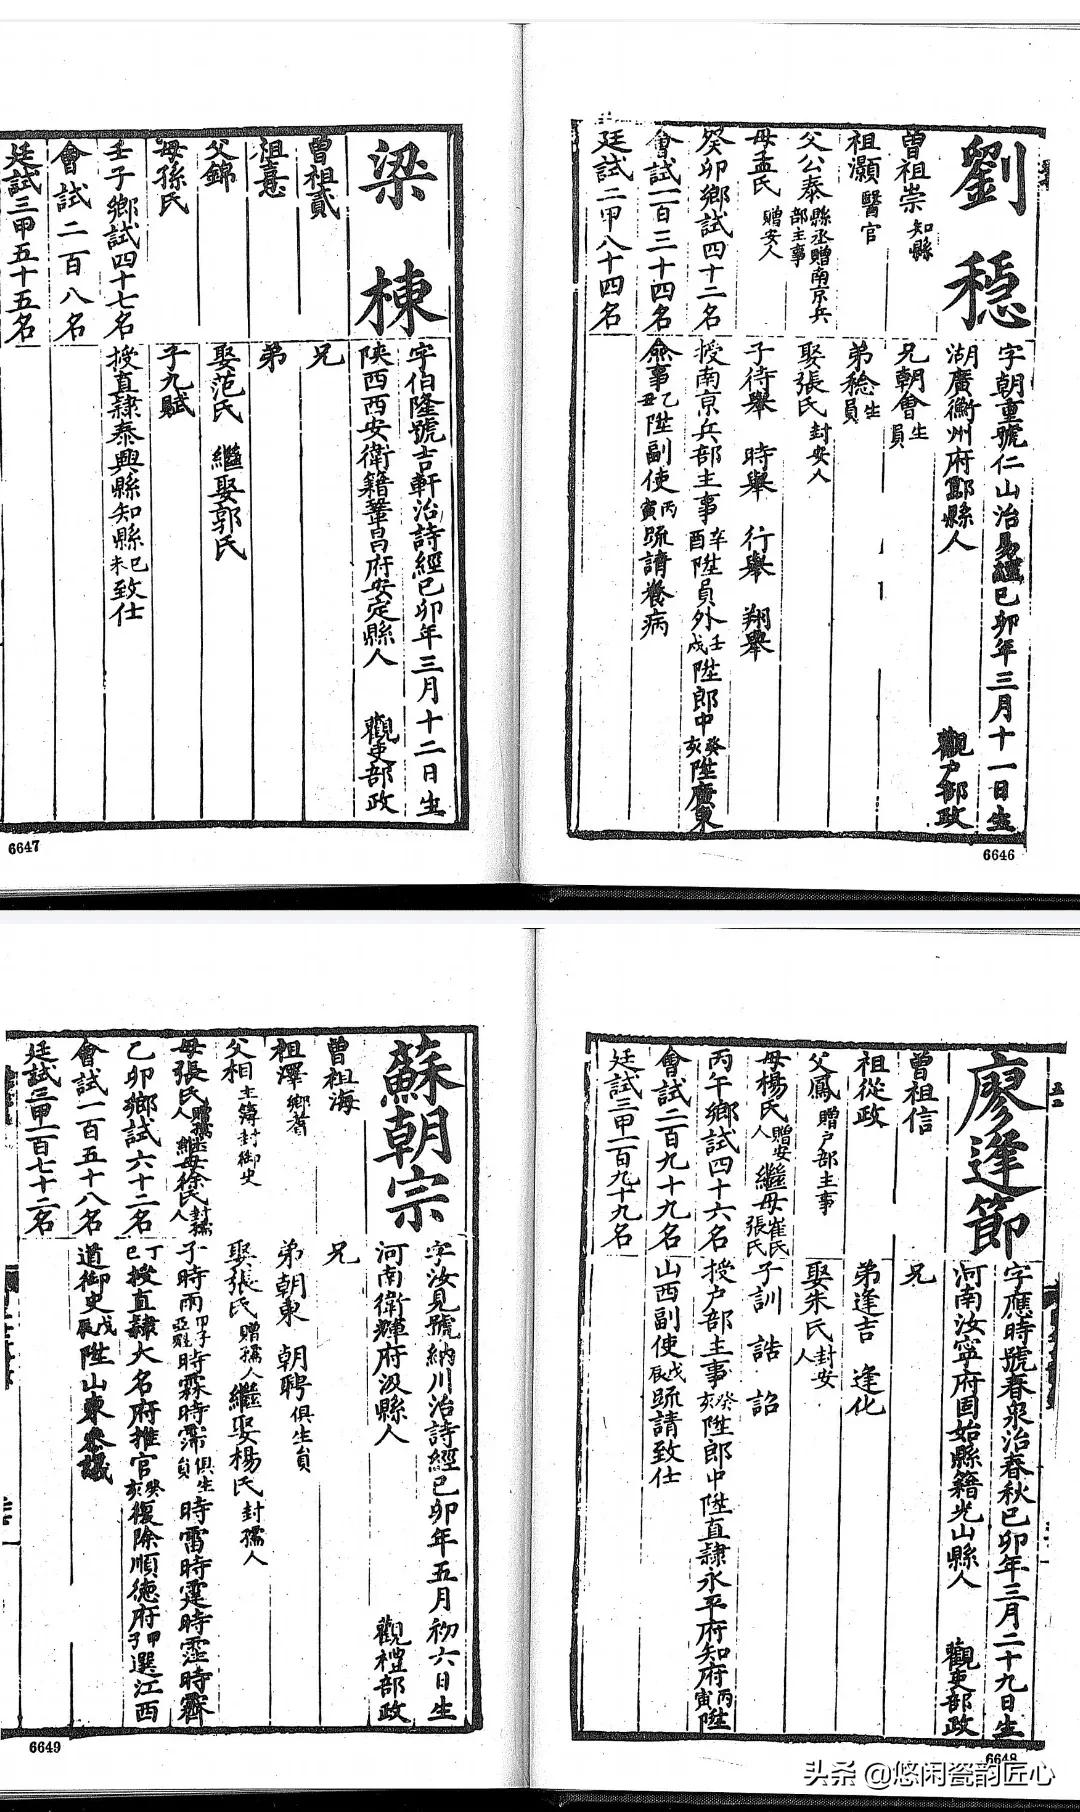 劉穩
字朝重號仁山治易經己卯年三月十一日生
湖廣衡州府酃縣人 觀户部政
曾祖崇 知縣
兄朝會 生員
祖灝 醫官
弟稔 生員
父公泰 縣丞贈南京兵部主事
娶張氏 封安人
母孟氏 贈安人
子待舉 時舉 行舉 翔舉
癸卯鄉試四十二名
授南京兵部主事辛酉陞員外壬戌陞郎中癸亥陞廣東
會試一百三十四名
僉事乙丑陞副使丙寅疏請養病
廷試二甲八十四名
6646
梁棟
字伯隆號吉軒治詩經己卯年三月十二日生
陜西西安衛籍鞏昌府安定縣人 觀吏部政
曾祖貳
兄
祖憙
弟
父錦
娶范氏 繼娶郭氏
母孫氏
子九賦
壬子鄉試四十七名
授直隸泰興縣知縣己未致仕
會試二百八名
廷試三甲五十五名
6647
廖逢節
字應時號春泉治春秋己卯年三月二十九日生
河南汝寧府固始縣籍光山縣人 觀吏部政
曾祖信
兄
祖從政
弟逢吉 逢化
父鳳 贈户部主事
娶朱氏 封安人
母楊氏 贈安人 繼母崔氏張氏
子訓 誥 詔
丙午鄉試四十六名
授户部主事癸亥陞郎中陞直隸永平府知府丙寅陞
會試二百九十九名
山西副使戊辰疏請致仕
廷試三甲一百九十九名
6648
蘇朝宗
字汝見號納川治詩經己卯年五月初六日生
河南衛輝府汲縣人 觀禮部政
曾祖海
兄
祖澤 鄉耆
弟朝東 朝聘 俱生員
父相 主簿封御史
娶張氏 贈孺人 繼娶楊氏 封孺人
母張氏 贈孺人 繼母徐氏 封孺人
子時雨 甲子亞魁 時霖時霈 俱生員 時雷時霆時霑時霽
乙卯鄉試六十二名
丁巳授直隸大名府推官癸亥復除順德府甲子選江西
會試一百五十八名
道御史戊辰陞山東參議
廷試三甲一百七十二名
6649
头条 @悠闲瓷韵匠心